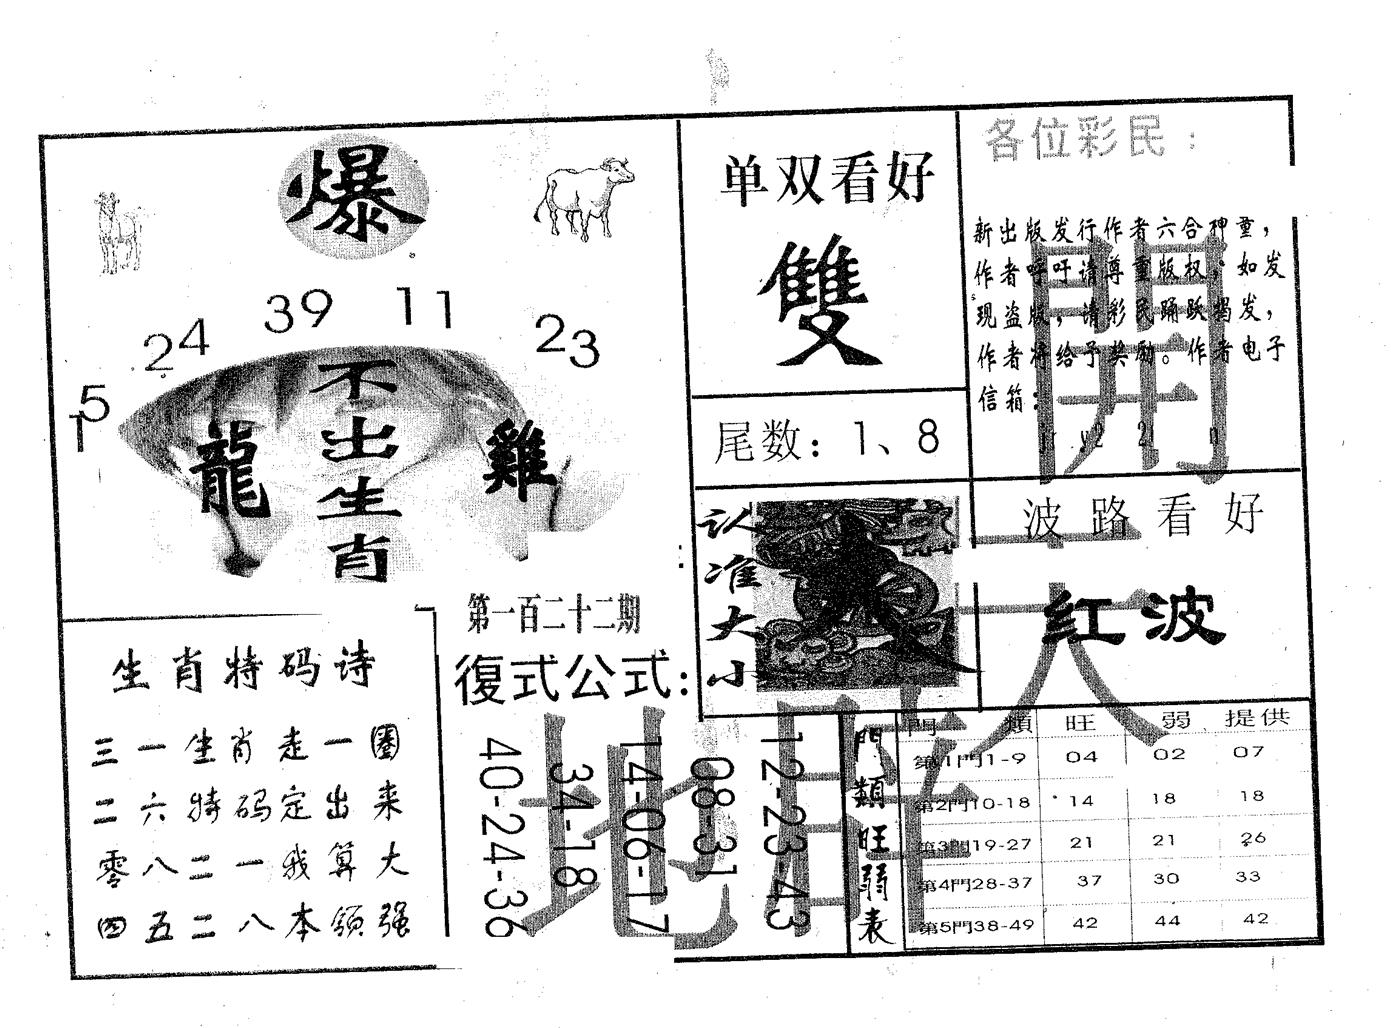 爆
15
24
39
11
23
不出生肖
龍
雞
单双看好
雙
尾数：1、8
各位彩民：
新出版发行作者六合神童，
作者呼吁请尊重版权，如发
现盗版，请彩民踊跃揭发，
作者将给予奖励。作者电子
信箱：
认准大小
波路看好
红波
第一百二十二期
復式公式:
40-24-36
34-18
14-06-17
08-31
12-23-43
生肖特码诗
三一生肖走一圈
二六特码定出来
零八二一我算大
四五二八本领强
門類旺弱表
門類 旺 弱 提供
第1門1-9 04 02 07
第2門10-18 14 18 18
第3門19-27 21 21 26
第4門28-37 37 30 33
第5門38-49 42 44 42